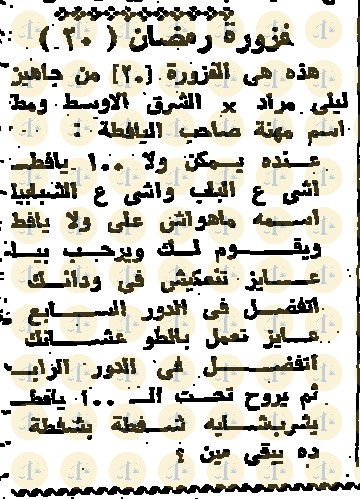 فزورة رمضان ( ٢٠ )
هذه هى الفزورة [٢٠] من جاهين
ليلى مراد × الشرق الاوسط ومطـ
اسم مهنة صاحب اليافطة :
عـنده يـمكن ولا ١٠٠ يافطـ
اشى ع الباب واشى ع الشبابيـ
اسـمه ماهواش على ولا يافطـ
ويقـوم لـك ويرحـب بيـك
عـايز تفصل
اتفضـل فى الدور السـابع
عـايز تعمل بالطو عشـانك
اتفضـل فى الدور الرابـ
ثم يروح تحـت الـ ١٠٠ يافطـ
يشربشـايه شـفطة بشفطة
ده يبقى مين ؟